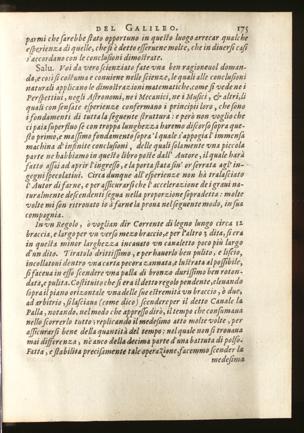 DEL GALILEO. 175
parmi che sarebbe stato opportuno in questo luogo arrecar qualche
esperienza di quelle, che si è detto esserne molte, che in diuersi casi
s'accordano con le conclusioni dimostrate.
Salu. Voi da vero scienziato fate vna ben ragioneuol doman-
da, e così si costuma e conuiene nelle scienze, le quali alle conclusioni
naturali applicano le dimostrazioni matematiche. come si vede ne i
Perspettiui, negli Astronomi, ne i Mecanici, ne i Musici, & altri, li
quali con sensate esperienze confermano i principii loro, che sono
i fondamenti di tutta la seguente struttura: e però non voglio che
ci paia superfluo se con troppa lunghezza haremo discorso sopra que-
sto primo, e massimo fondamento sopra 'l quale s'appoggia l'immensa
machina d'infinite conclusioni, delle quali solamente vna piccola
parte ne habbiamo in questo libro poste dall' Autore, il quale harà
fatto assai ad aprir l'ingresso, e la porta stata sin' or serrata agl' in-
gegni specolatiui. Circa dunque all' esperienze non hà tralasciato
l' Autor di farne, e per assicurarsi che l' accelerazione de i graui na-
turalmente descendenti segua nella proporzione sopradetta: molte
volte mi son ritrouato io à farne la proua nel seguente modo, in sua
compagnia.
In vn Regolo, ò voglian dir Corrente di legno lungo circa 12
braccia, e largo per vn verso mezo braccio, e per l'altro 3 dita, si era
in questa minor larghezza incauato vn canaletto poco più largo
d'vn dito. Tiratolo drittissimo, e per hauerlo ben pulito, e liscio,
incollatoui dentro vna carta pecora zannata, e lustrata al possibile,
si faceua in esso scendere vna palla di bronzo durissimo ben roton-
data, e pulita. Costituito che si era il detto regolo pendente, eleuando
sopra il piano orizontale vna delle sue estremità vn braccio, ò due,
ad arbitrio, si lasciaua (come dico) scendere per il detto Canale la
Palla, notando, nel modo che appresso dirò, il tempo che consumaua
nello scorrerlo tutto; replicando il medesimo atto molte volte, per
assicurarsi bene della quantità del tempo; nel quale non si trouaua
mai differenza, nè anco della decima parte d'vna battuta di polso.
Fatta, e stabilita precisamente tale operazione. facemmo scender la
medesima